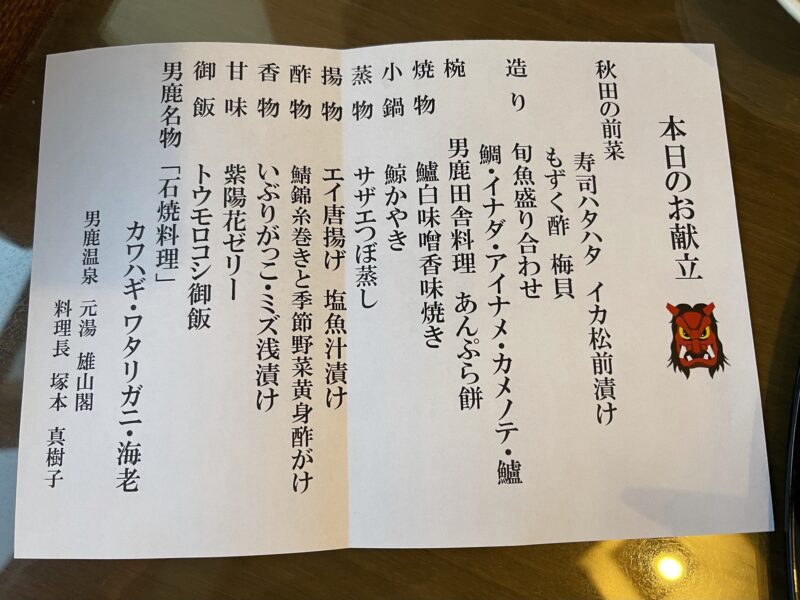 本日のお献立
秋田の前菜
寿司ハタハタ　イカ松前漬け
もずく酢　梅貝
造り　旬魚盛り合わせ
鯛・イナダ・アイナメ・カメノテ・鱸
椀　男鹿田舎料理　あんぷら餅
焼物　鱸白味噌香味焼き
小鍋　鯨かやき
蒸物　サザエつぼ蒸し
揚物　エイ唐揚げ　塩魚汁漬け
酢物　鯖錦糸巻きと季節野菜黄身酢がけ
香物　いぶりがっこ・ミズ浅漬け
甘味　紫陽花ゼリー
御飯　トウモロコシ御飯
男鹿名物「石焼料理」
カワハギ・ワタリガニ・海老
男鹿温泉　元湯　雄山閣
料理長　塚本　真樹子